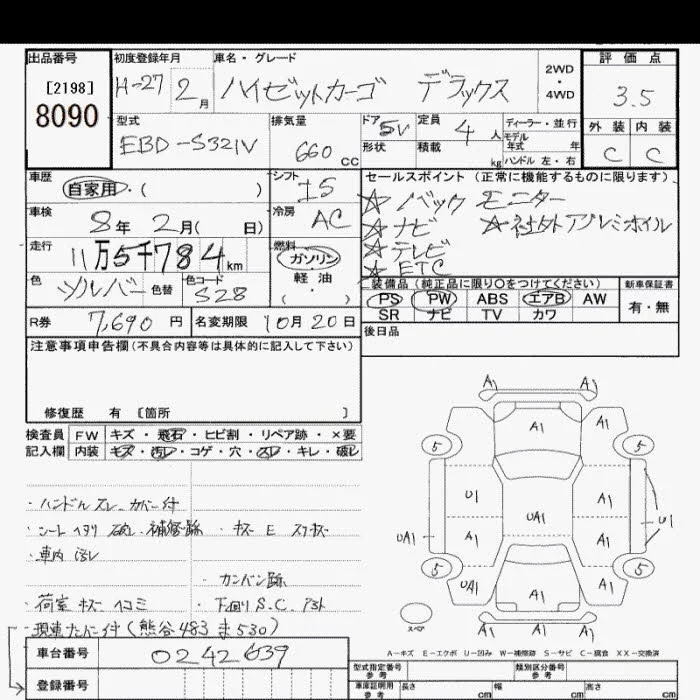 出品番号 初度登録年月 車名・グレード 2WD ・ 4WD 評価点
[2198] 8090 H-27 2月 ハイゼットカーゴ デラックス 3.5
型式 排気量 ドア 5V 定員 4人 ディーラー・並行 外装 内装
EBD-S321V 660cc 形状 積載 kg モデル年式 年 ハンドル 左・右 C C
車歴 自家用・( ) シフト I5 セールスポイント (正常に機能するものに限ります)
☆バックモニター
車検 8年 2月( 日) 冷房 AC ☆ナビ ☆社外アルミホイル
走行 11万5千784km 燃料 ガソリン・軽油・( ) ☆テレビ
☆ETC
色 シルバー 色替 色コード S28 装備品 (純正品に限り○をつけてください) 新車保証書
PS PW ABS エアB AW 有・無
SR ナビ TV カワ
R券 7,690円 名変期限 10月20日 後日品
注意事項申告欄(不具合内容等は具体的に記入して下さい)
修復歴 有 [箇所 ]
検査員 FW キズ・飛石・ヒビ割・リペア跡・×要
記入欄 内装 キズ・汚レ・コゲ・穴・スレ・キレ・破レ
・ハンドルスレ カバー付
・シートヘタリ 破レ 補修跡 ・キズ E スリキズ
・車内汚レ
・カンバン跡
・荷室キズ ヘコミ ・下回り S.C. アト
・現車ナンバー付(熊谷483ま530)
車台番号 0242639
登録番号
A1 A1
A1 A1 A1
5 5
U1 UA1 A1
UA1 A1 A1 U1
5 5
UA1 A1 A1
スペア A1 A1
A-キズ E-エクボ U-凹み W-補修跡 S-サビ C-腐食 XX-交換済
型式指定番号 参考 類別区分番号 参考
車庫証明用 参考 長さ cm 幅 cm 高さ cm